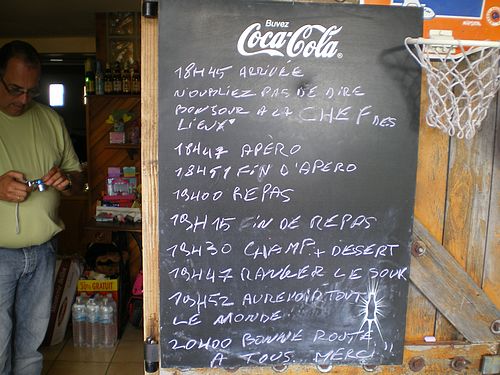 Buvez
Coca-Cola
18H45 ARRIVÉE
N'OUBLIEZ PAS DE DIRE
BONJOUR A LA CHEF DES
LIEUX
18H47 APÈRO
18H57 FIN D'APERO
19H00 REPAS
19H15 FIN DE REPAS
19H30 CHAMP + DESERT
19H47 RANGER LE SOUK
19H52 AUREVOIR TOUT
LE MONDE
20H00 BONNE ROUTE
A TOUS... MERCI
GRATUIT